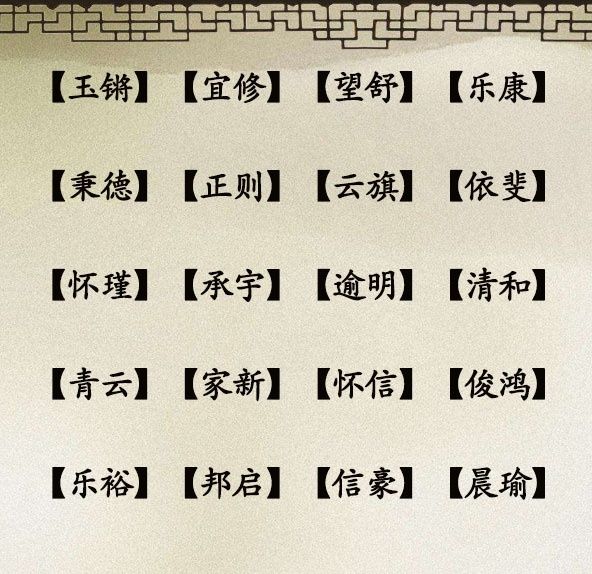 【玉锵】【宜修】【望舒】【乐康】
【秉德】【正则】【云旗】【依斐】
【怀瑾】【承宇】【逾明】【清和】
【青云】【家新】【怀信】【俊鸿】
【乐裕】【邦启】【信豪】【晨瑜】